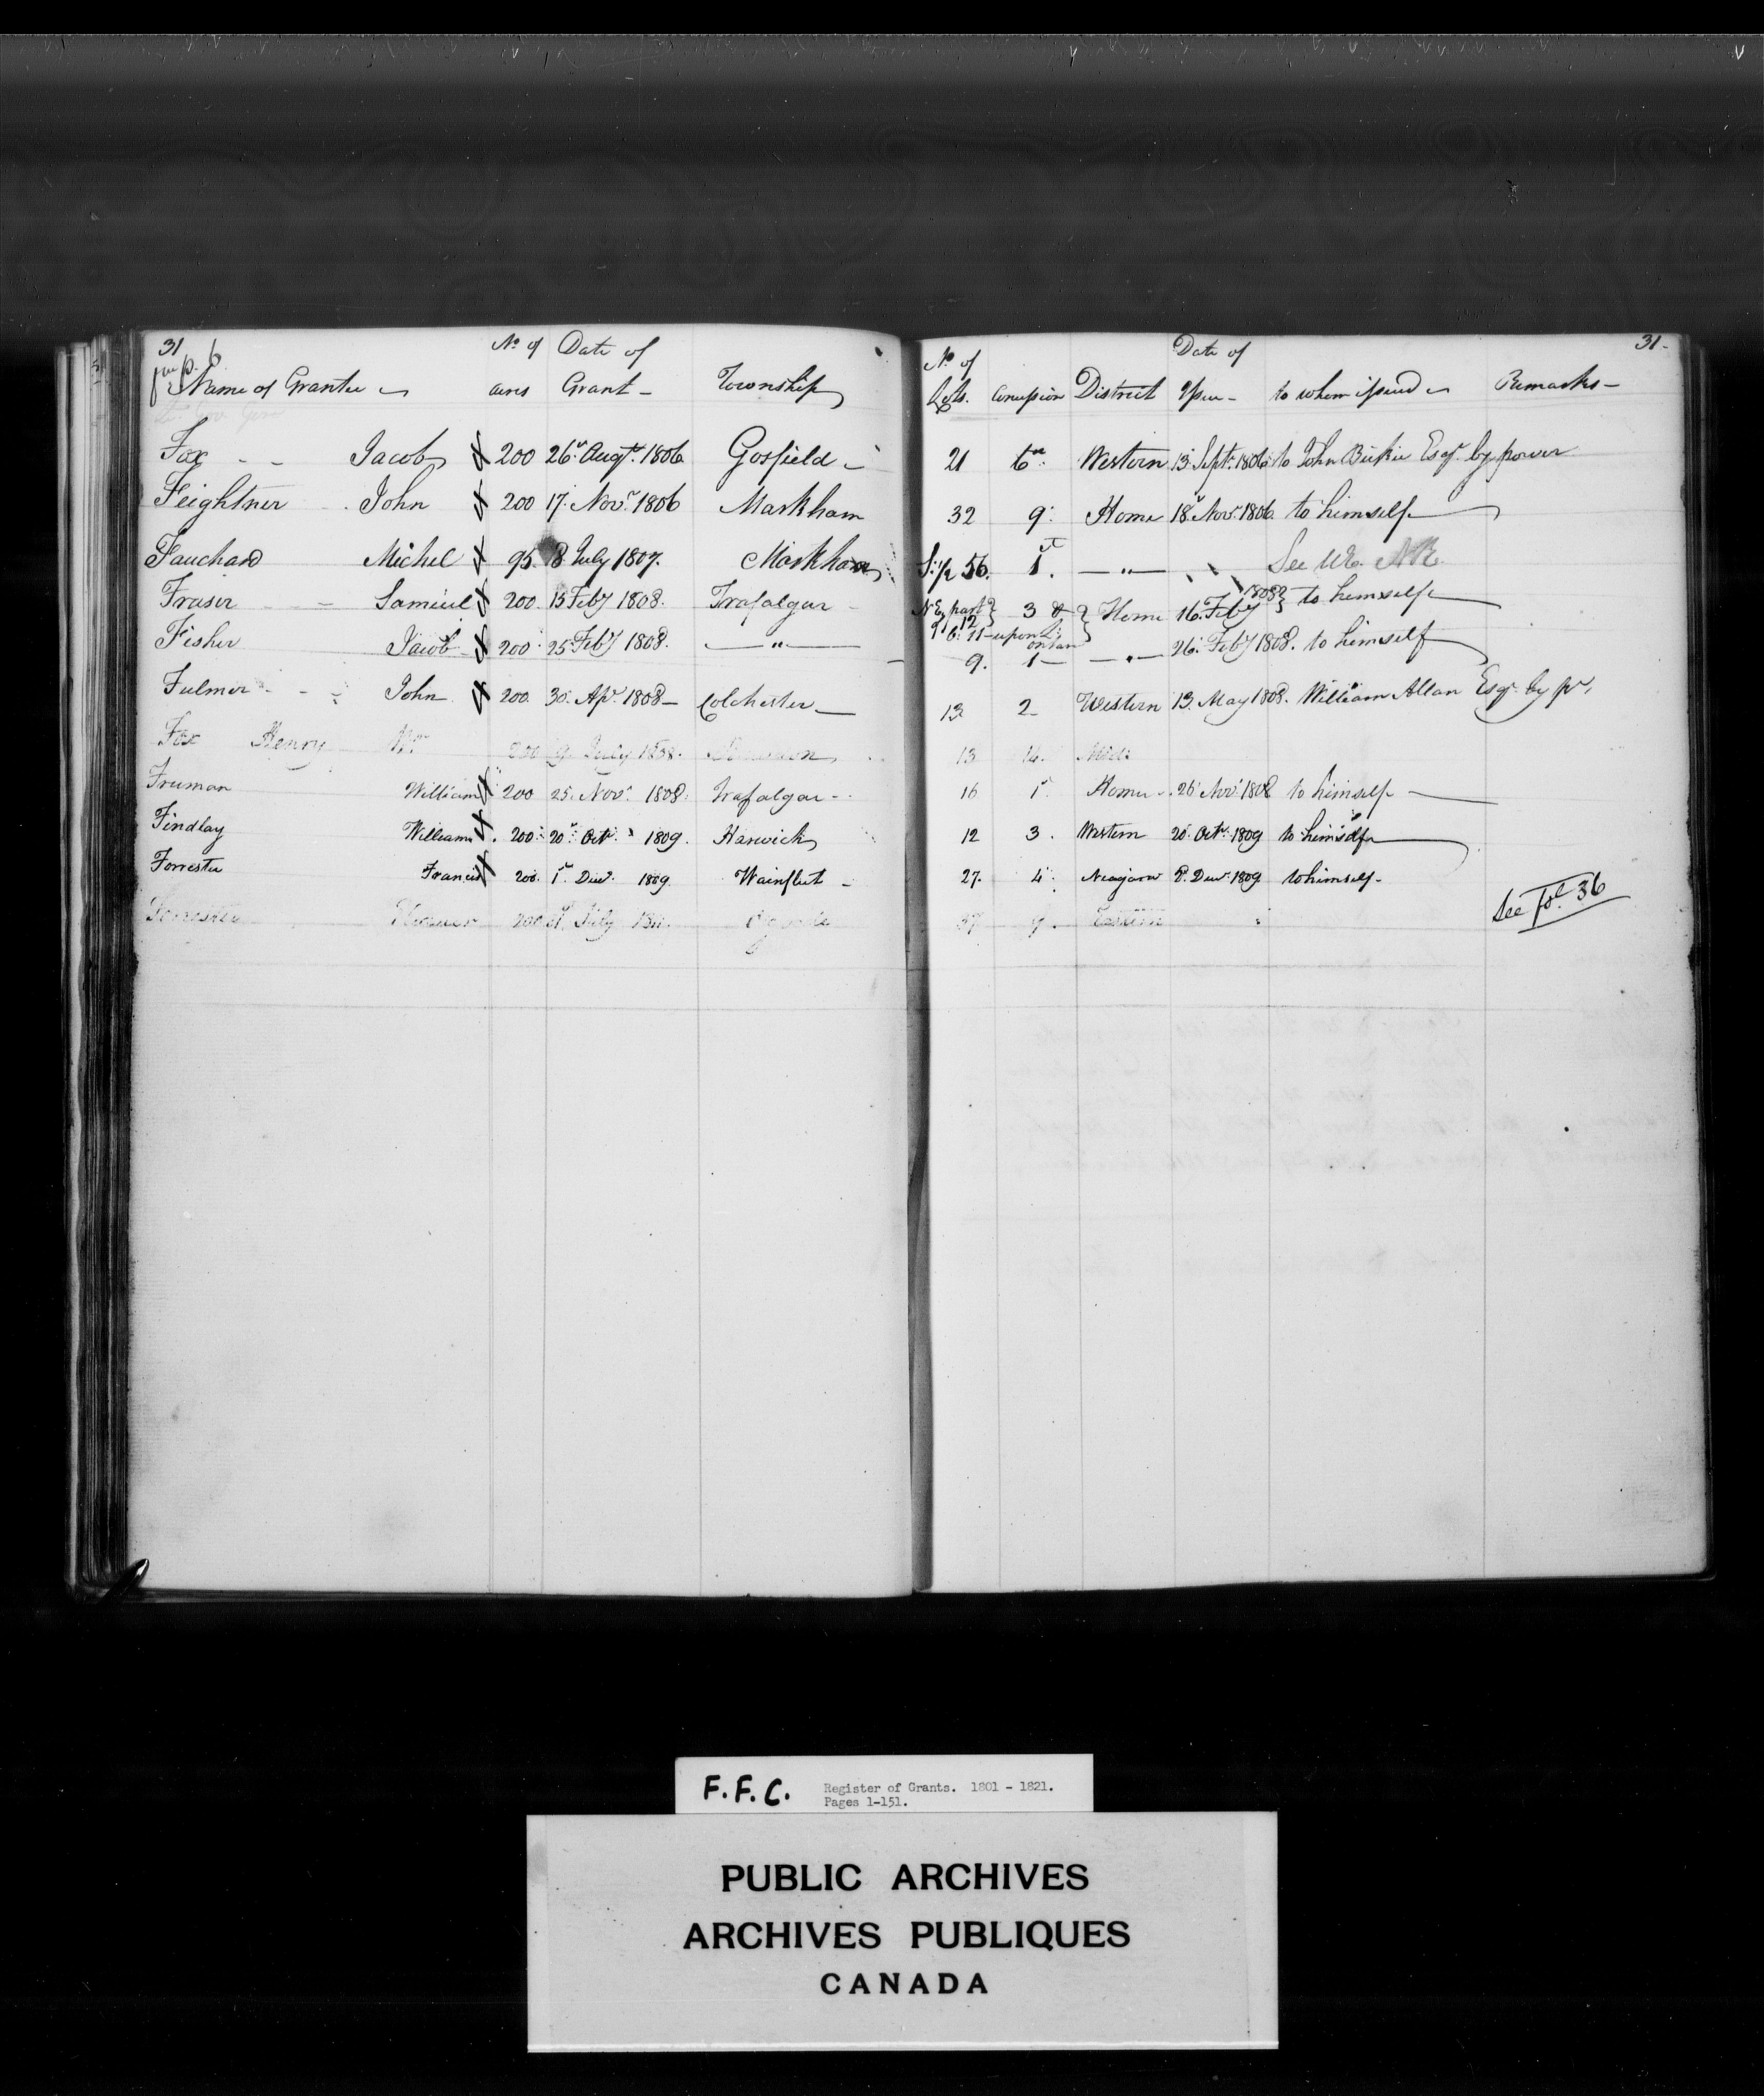 31
31-
fm p. 6
Name of Grantee Nº of acres Date of Grant - Township Nº of Lots. Concession District Date of Issue - to whom issued Remarks -
Fox Jacob 200 26. Augt. 1806 Gosfield 21 6 Western 13. Sept. 1806 to John Beikie Esqr. by power
Feightner John 200 17. Novr. 1806 Markham 32 9. Home 18. Novr. 1806 to himself
Fauchard Michel 95. 8 July 1807. Markham S. 1/2 56. 1. - " - See
Fraser Samuel 200. 15 Feby 1808. Trafalgar N E part of 12 3 & Home 16. Feby 1808 to himself
11 upon
Fisher Jacob 200. 25 Feby 1808. - " - 9. 1 - - " - 26. Feby 1808. to himself
Fulmer John 200. 30. Apr. 1808 - Colchester 13 2 Western 13. May 1808. William Allan Esqr. by pr.
Fox Henry 200 9. July 1808. 13 14.
Fruman William 200 25. Novr. 1808. Trafalgar - 16 1 Home 26 Novr. 1808 to himself
Findlay William 200. 20. Octr. 1809. Harwick 12 3. Western 20. Octr. 1809 to himself
Forrester Francis 200. 1. Decr. 1809. Wainfleet - 27. 4. Niagara 8. Decr. 1809 to himself -
200 July 37 Eastern
See fol. 36
F.F.C. Register of Grants. 1801 - 1821.
Pages 1-151.
PUBLIC ARCHIVES
ARCHIVES PUBLIQUES
CANADA